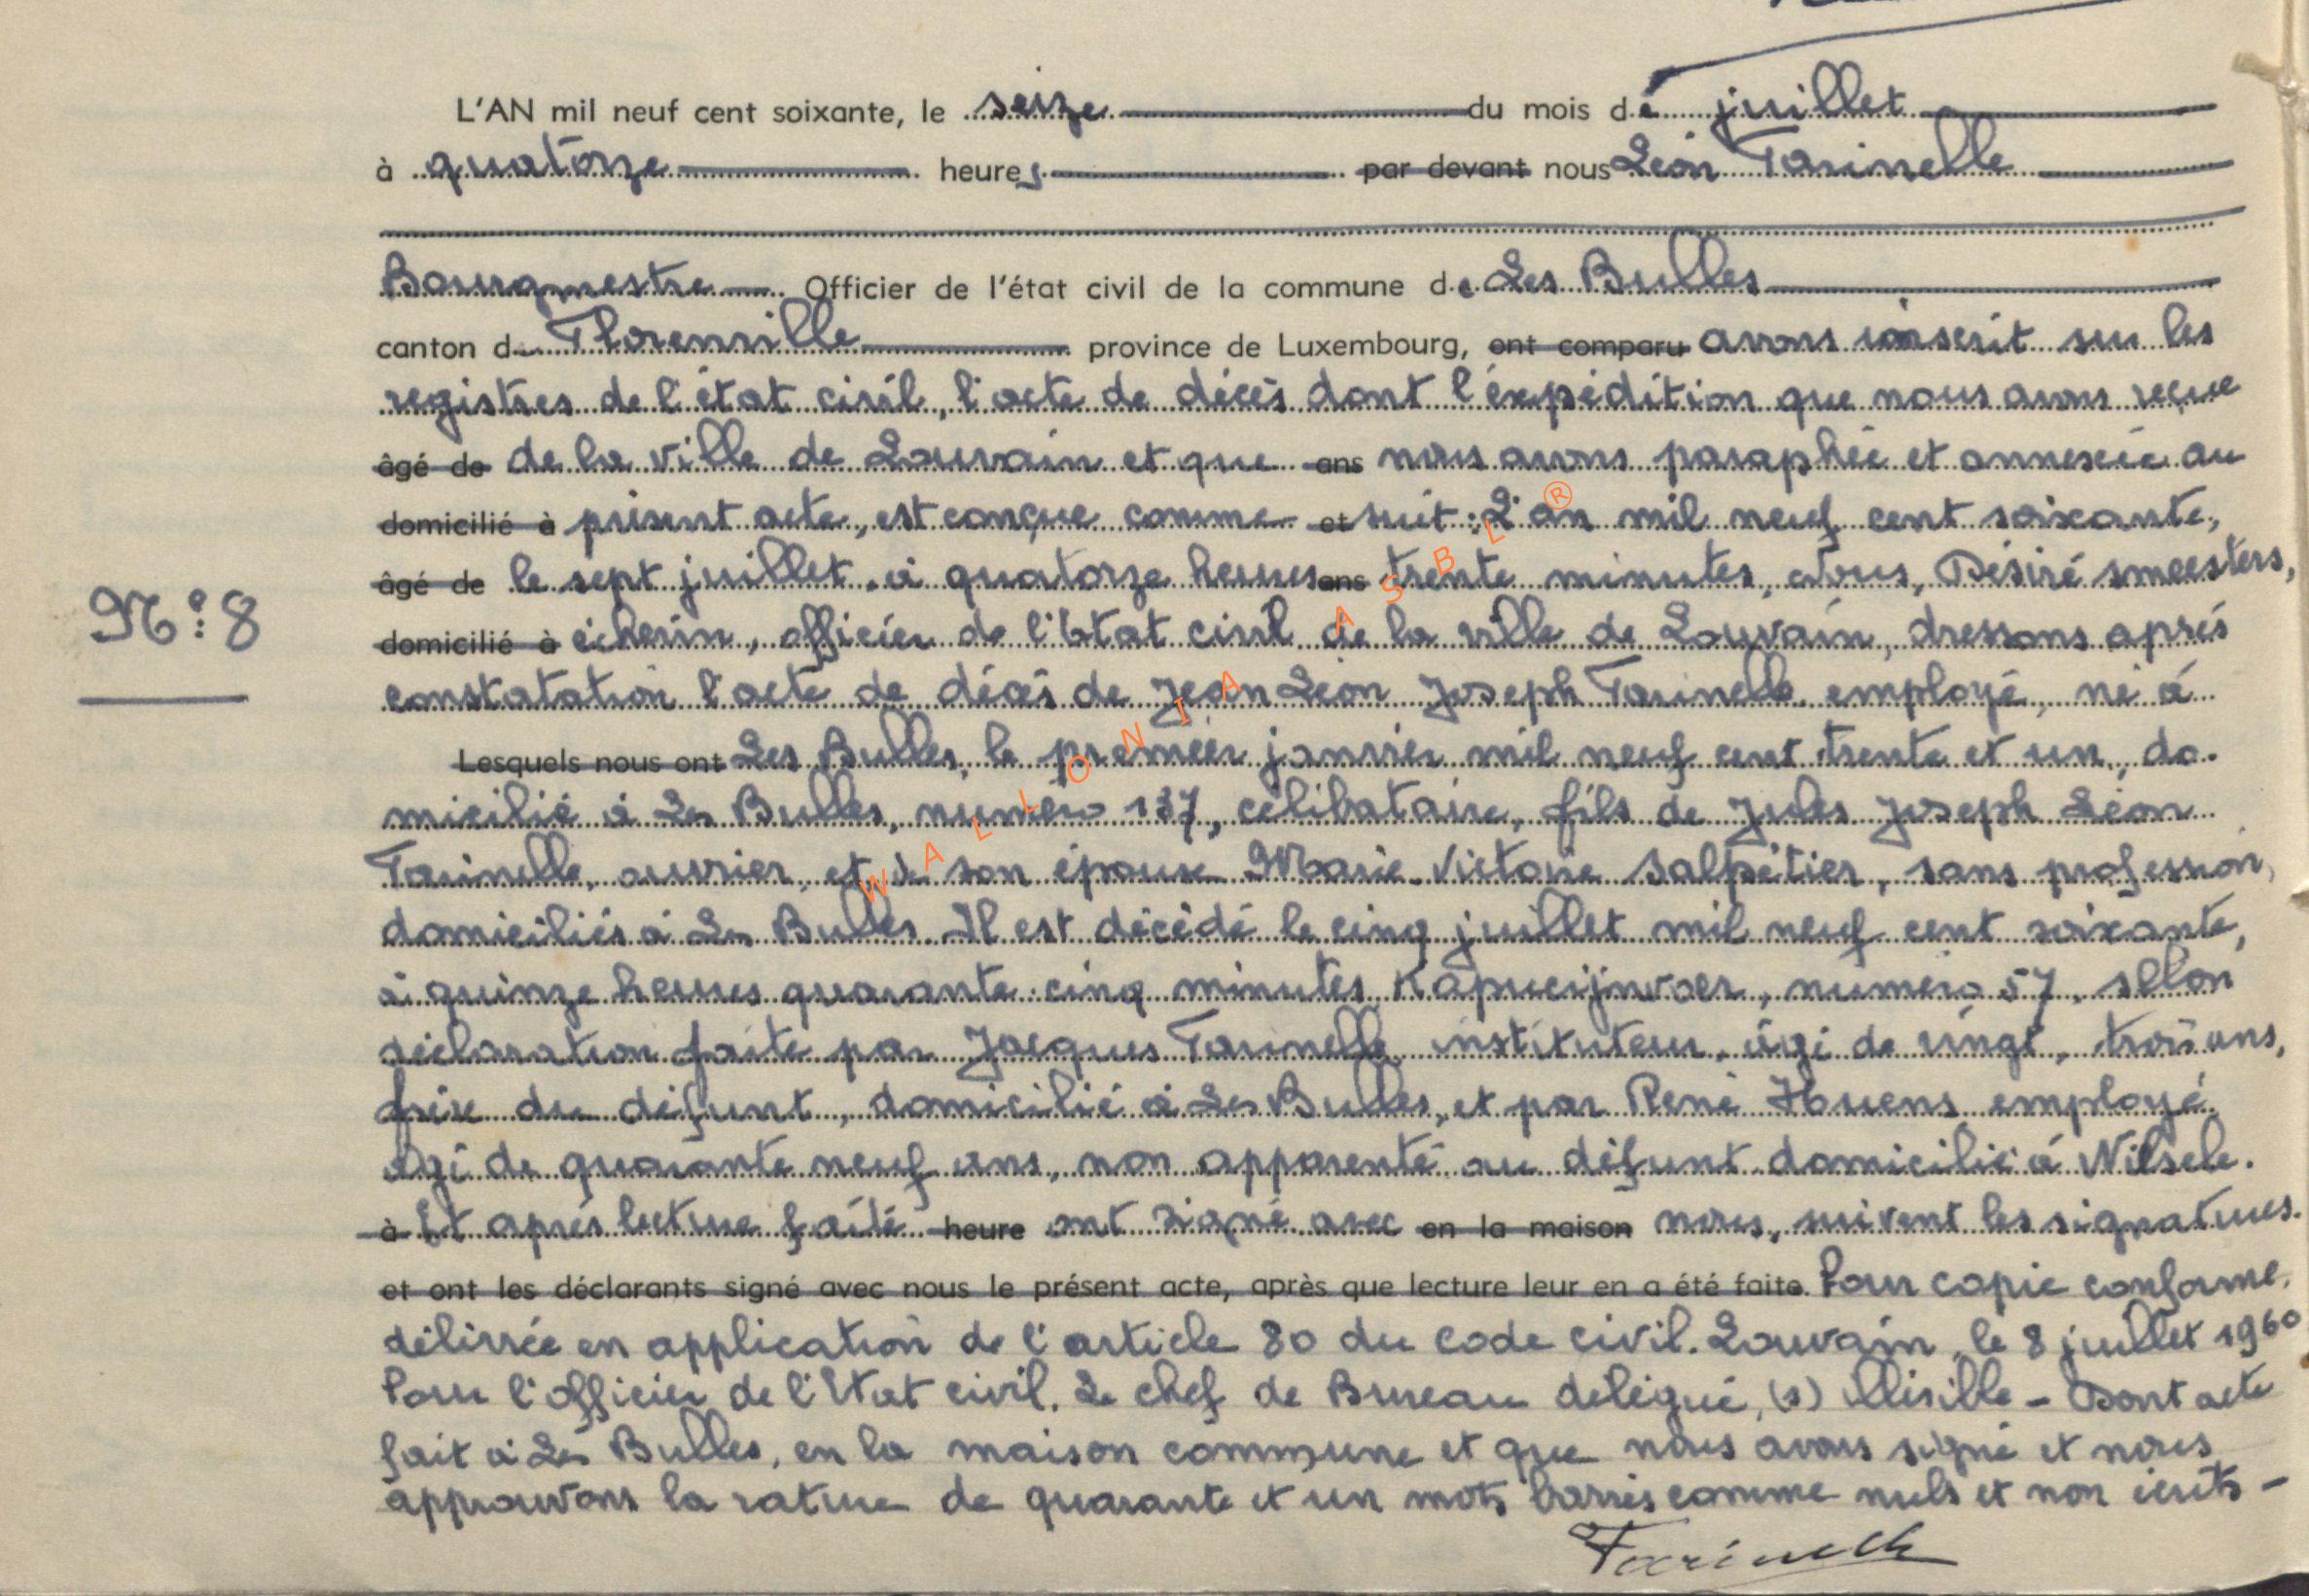 L'AN mil neuf cent soixante, le seize du mois de juillet
à quatorze heures par devant nous Léon Tarinelle
Bourgmestre Officier de l'état civil de la commune de Les Bulles
canton d Florenville province de Luxembourg, ont comparu avons inscrit sur les
registres de l'état civil, l'acte de décès dont l'éxpédition que nous avons reçue
âgé de de la ville de Louvain et que ans nous avons paraphée et annexée au
domicilié à présent acte, est conçue comme et suit : L'an mil neuf cent soixante,
âgé de le sept juillet, à quatorze heures ans trente minutes, Nous, Désiré Smeesters,
N°: 8
domicilié à échevin, officier de l'Etat civil de la ville de Louvain, dressons après
constatation l'acte de décès de Jean Léon Joseph Tarinelle, employé, né à
Lesquels nous ont Les Bulles, le premier janvier mil neuf cent trente et un, do-
micilié à Les Bulles, numéro 137, célibataire, fils de Jules Joseph Léon
Tarinelle, ouvrier, et de son épouse Marie-Victorie Salpétier, sans profession,
domiciliés à Les Bulles. Il est décédé le cinq juillet mil neuf cent soixante,
à quinze heures quarante-cinq minutes, Kapucijnvoer, numéro 57, selon
déclaration faite par Jacques Tarinelle, instituteur, âgé de vingt, trois ans,
frère du défunt, domicilié à Les Bulles, et par René employé
âgé de quarante neuf ans, non apparenté au défunt domicilié à Wilsele.
à Et après lecture faite heure ont signé avec en la maison nous, suivent les signatures.
et ont les déclarants signé avec nous le présent acte, après que lecture leur en a été faite. Pour copie conforme,
délivrée en application de l'article 80 du code civil. Louvain, le 8 juillet 1960
Pour l'officier de l'Etat civil. Le chef de Bureau délégué, (s) - Dont acte
fait à Les Bulles, en la maison commune et que nous avons signé et nous
approuvons la rature de quarante et un mots barrés comme nuls et non écrits -
Tarinelle
WALLONIA ASBL ®